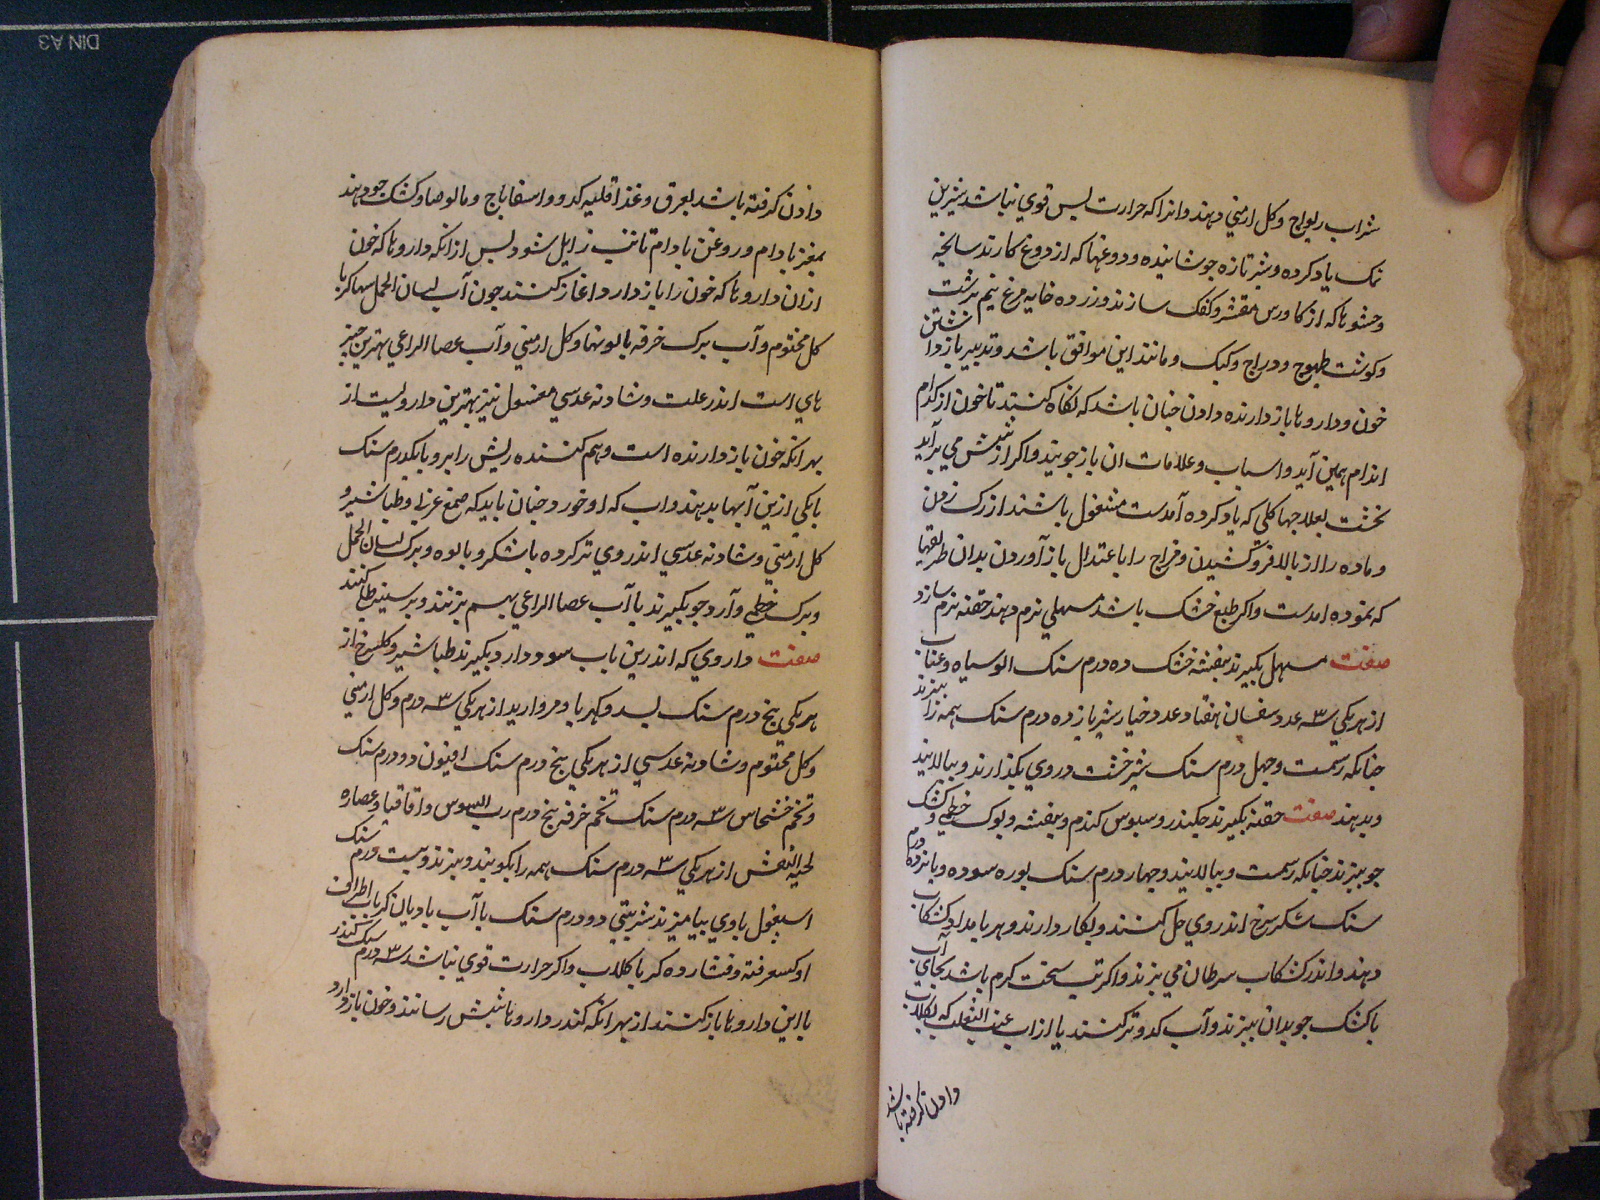 شراب ریواج وکل ارمني دهند وانرا که حرارت بس قوي نباشد پنیرین
نمک یاد کرده وشیر تازه جوشانیده ودوغبها که از دوغ کارند سایخیه
وحشوها که از کاورس مقشر وکفک سازند وزرده خایه مرغ نیم برشت
وکوشت طیهوج ودراج وکبک ومانند این موافق باشد وتدبیر بازداشتن
خون وداروها بازدارنده دادن جنان باشد که نکاه کنند تا خون از کدام
اندام همین آید واسباب وعلامات ان باز جویند واکر از شش می برآید
نخست بعلاجها کلی که یاد کرده آمدست مشغول باشند از رک زدن
وماده را از بالا فروکشیدن ومزاج را باعتدال باز آوردن بدان طریقها
که نموده امدست واکر طبع خشک باشد مسهلي نرم دهند حقنه نرم سازند
صفت مسهل بکیرند بنفشه خشک ده درم سنک الو سیاه وعناب
از هریکي ۳سه عدد سفستان هفتاد عدد خیارشنبر یازده درم سنک همه را بپزند
جنانکه رسمست وجهل درم سنک شیرخشت دروي بکذارند وبپالایند
وبدهند صفت حقنه بکیرند جکندر وسبوس کندم وبنفشه وبوک خطمي وکشک
جو بپزند جنانکه رسمست وبپالایند وجهار درم سنک بوره سوده وپانزده درم
سنک شکر سرخ اندر وي حل کنند وبکار دارند وهر بامداد کشکاب
دهند واندر کشکاب سرطان می پزند واکر تب سخت کرم باشد بجاي آب
باکشک جو بدان بپزند وآب کدو تر کنند یا از اب عنب الثعلب که بکلاب
دادن کرفته باشد
دادن کرفته باشد بعرق وغذا قلیه کدو واسفاناج ومالوصا وکشک جو دهند
بمغز بادام وروغن بادام تا تب زایل شود پس از انکه داروها که خون
ازان داروها که خون را باز دارد اغاز کنند جون آب لسان الحمل سها کربا
کل مختوم وآب برک خرفه بالونها وکل ارمني وآب عصا الراعي بهترین چیز
هاي است اندر علت وشادنه عدسي مغسول نیز بهترین داروئیست از
بهر انکه خون باز دارنده است وهم کننده ریش را بر وبایکدرم سنک
بایکي ازین آبها بدهند واب که او خورد جنان باید که صمغ عربي وطباشیر و
کل ارمني وشادنه عدسي اندر وي تر کرده باشکر وبالوه وبرک لسان الحمل
وبرک خطمي وآرد جو بکیرند با آب عصا الراعي بهم بزنند وبر سینه طلي کنند
صفت داروي که اندرین باب سود دارد بکیرند طباشیر وکلسرخ از
هریکي پنج درم سنک بسد وکهربا ومروارید از هریکي ۳سه درم وکل ارمني
وکل مختوم وشادنه عدسي از هریکي پنج درم سنک افیون دو درم سنک
وتخم خشخاس ۳سه درم سنک تخم خرفه پنج درم رب السوس واقاقیا وعصاره
لحیة التیس از هریکي ۳سه درم سنک همه را بکوبند وببزند وبیست درم سنک
اسبغول باوي بیامیزند شربتي دو درم سنک با آب بادیان کر یا اطراف
او کسوفته وفشارده کر یا کلاب واکر حرارت قوي نباشد ۳سه درم سنک کندر
با این داروها باز کنند از بهر انکه کندر داروها بشش رسانند وخون باز دارد
DIN A3